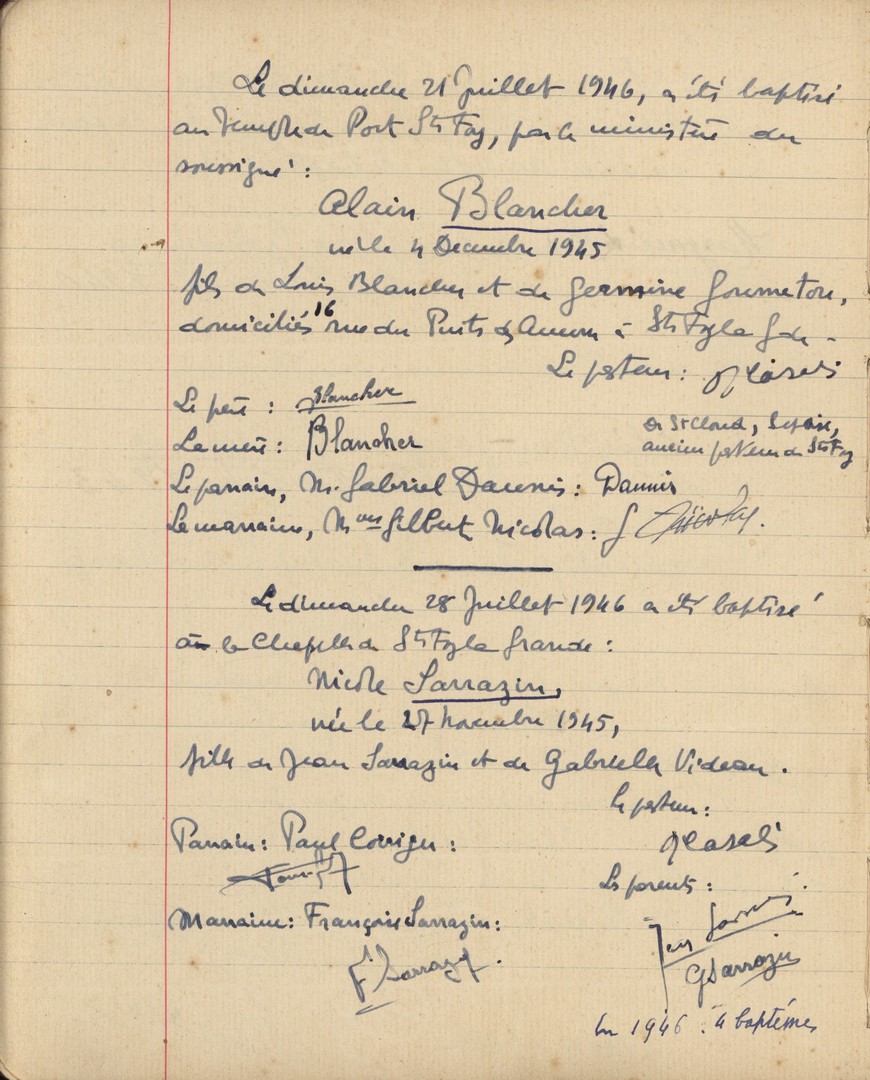 Le dimanche 21 Juillet 1946, a été baptisé
au Temple de Port Ste Foy, par le ministère du
soussigné :
Alain Blancher
né le 4 Décembre 1945
fils de Louis Blancher et de Germaine Goumeton,
domiciliés 16 rue du Puits à Ste Foy la Gde.
Le pasteur :
de St Cloud, S et Oise,
ancien pasteur de Ste Foy
Le père : Blancher
La mère : Blancher
Le parrain, M. Gabriel Daunis : Daunis
La marraine, Mme Gilbert Nicolas : G Nicolas.
Le dimanche 28 Juillet 1946 a été baptisée
à la Chapelle de Ste Foy la Grande :
Nicole Sarrazin,
née le 27 Novembre 1945,
fille de Jean Sarrazin et de Gabrielle Videau.
Le pasteur :
Parrain : Paul
Les parents :
Marraine : Françoise Sarrazin :
Jean Sarrazin
F. Sarrazin.
G Sarrazin
En 1946 : 4 baptêmes